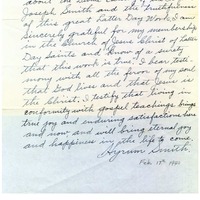 Joseph Smith and the truthfulness
of this great Latter Day Work. I am
sincerely grateful for my membership
in the Church of Jesus Christ of Latter
Day Saints and know of a surety
that this work is true. I bear testi-
mony with all the favor of my soul,
that God lives and that Jesus is
the Christ. I testify that living in
conformity with gospel teachings brings
true joy and enduring satisfactions here
and now and will bring eternal joy
and happiness in the life to come.
Hyrum Smith.
Feb. 15th